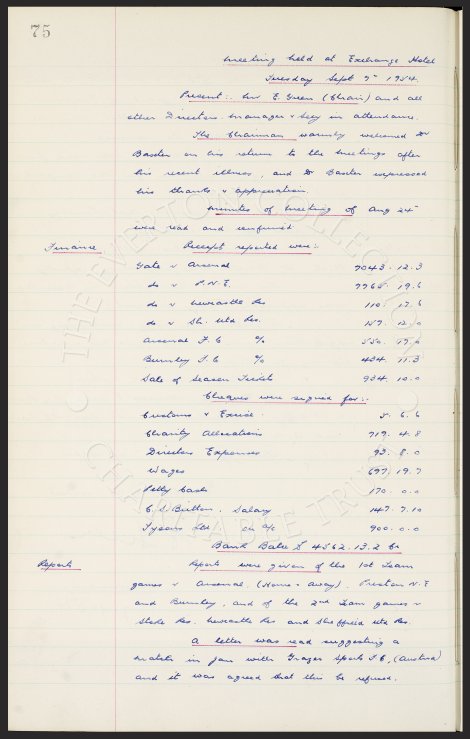 75
Meeting held at Exchange Hotel
Tuesday Sept 7" 1954
Present:- Mr E. Green (Chair) and all
other Directors. Manager & Secy in attendance.
The Chairman warmly welcomed Dr
Baxter on his return to the meetings after
his recent illness, and Dr Baxter expressed
his thanks & appreciation.
Minutes of Meeting of Aug 24"
were read and confirmed
Finance Receipt reported were:-
Gate v Arsenal 7043. 12. 3
do v P.N.E. 19. 6
do v Newcastle Res 110. 17. 6
do v Sh. Utd Res. 157. 12. 0
Arsenal F.C %
Burnley F.C % 434. 11. 3
Sale of Season Tickets 934. 10. 0
Cheques were signed for:-
Customs & Excise. 5. 6. 6
Charity Allocations 719. 4. 8
Directors Expenses 93. 8. 0
Wages 697. 19. 7
Petty Cash 170. 0. 0
C.S. Britton. Salary 147. 7. 10
Tysons Ltd on a/c 900. 0. 0
Bank Balce £ 4562. 13. 2 Cr
Reports Reports were given of the 1st Team
games v Arsenal. (Home & Away). Preston N.E
and Burnley, and of the 2nd Team games v
Stoke Res. Newcastle Res and Sheffield Utd Res.
A letter was read suggesting a
match in Jan with Grazer Sports F.C, (Austria)
and it was agreed that this be refused.
THE EVERTON COLLECTION
CHARITABLE TRUST